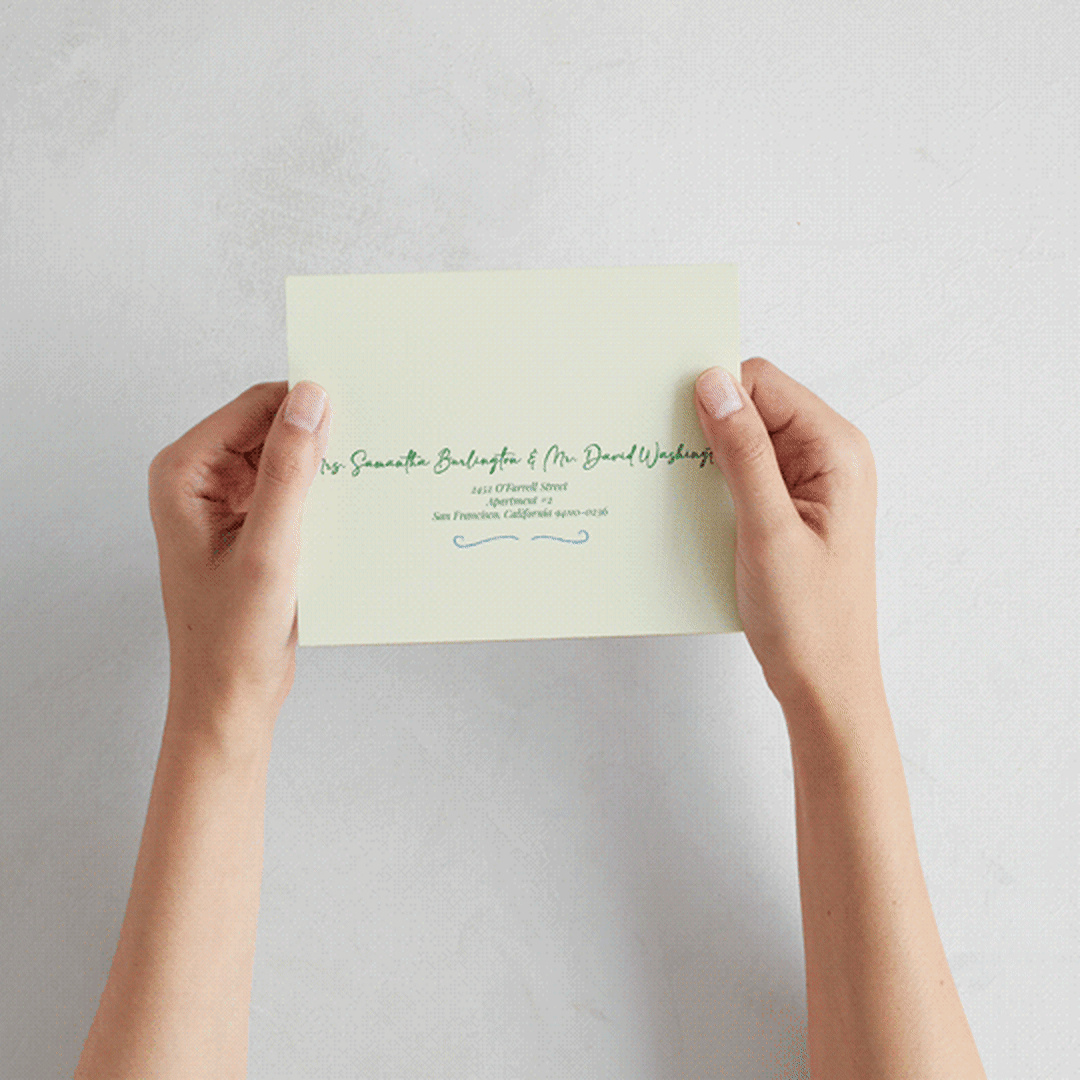 rs. Samantha Burlington & Mr. David Washingt
2451 O'Farrell Street
Apartment #2
San Francisco, California 94110-0236